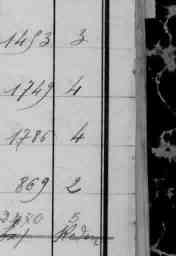 1453 3
1749 4
1786 4
869 2
2470 5